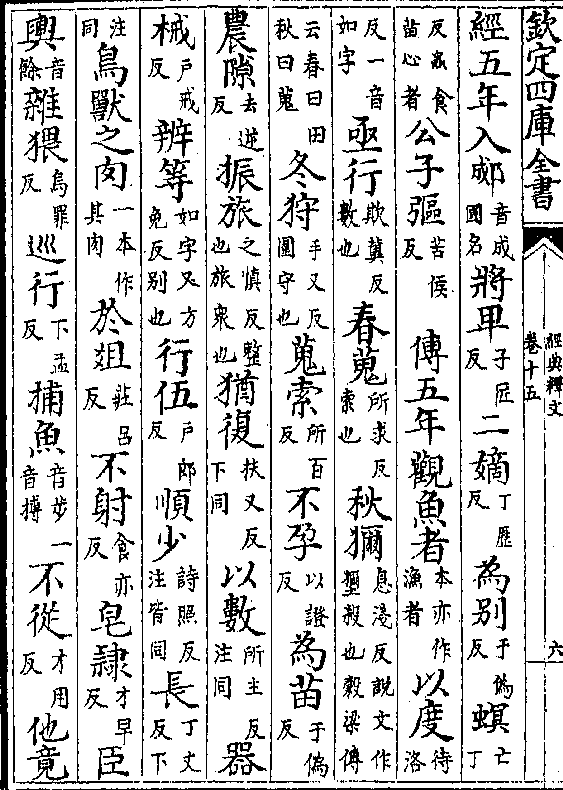 欽定四庫全書
經典釋文
卷十五
六
經五年入郕音成國名將卑子匠反二嫡丁歷反為别于偽反螟亡丁
反蟲食苗心者公子彄苦侯反傳五年觀魚者本亦作漁者以度待洛
反一音如字亟行欺冀反數也春蒐所求反索也秋獮息淺反說文作壐殺也穀梁傳
云春曰田秋曰蒐冬狩手又反圍守也蒐索所百反不孕以證反為苗于偽反
農隙去逆反振旅之慎反整也旅衆也猶復扶又反下同以數所主反注同器
械戶戒反辨等如字又方免反别也行伍戶郎反順少詩照反注皆同長丁丈反下
注同鳥獸之肉一本作其肉於俎莊呂反不射食亦反皂隸才早反臣
輿音餘雜猥烏罪反巡行下孟反捕魚音步一音搏不從才用反他竟